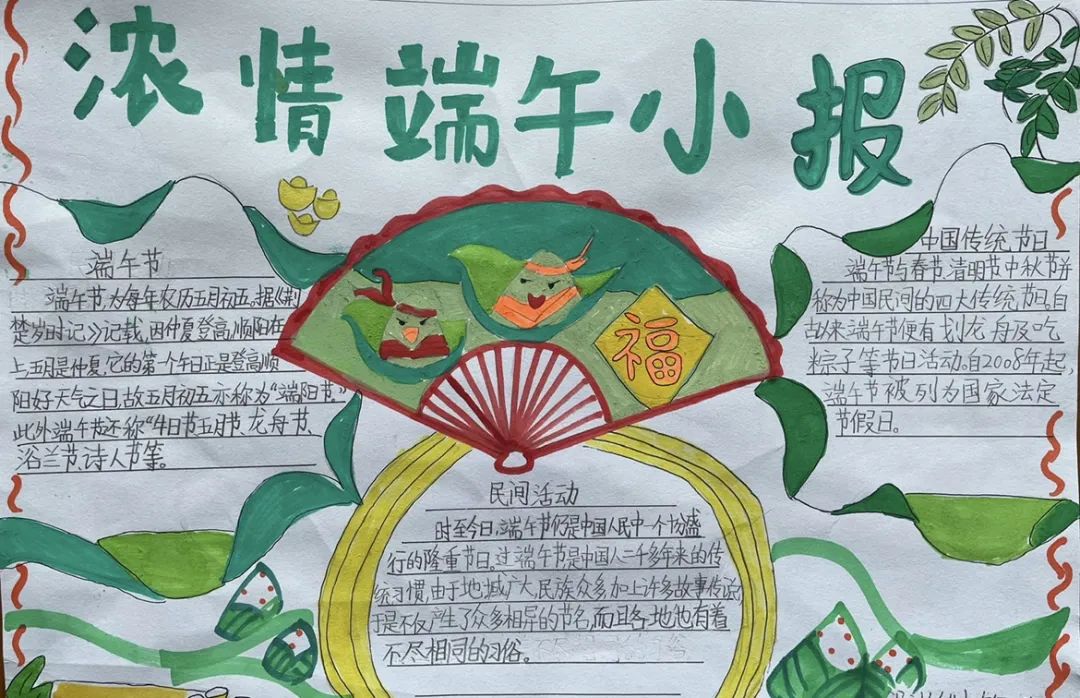 浓情端午小报
端午节
端午节,为每年农历五月初五。据《荆
楚岁时记》记载,因仲夏登高,顺阳在
上,五月是仲夏,它的第一个午日正是登高顺
阳好天气之日,故五月初五亦称为“端阳节”
此外端午节还称“午日节、五月节、龙舟节、
浴兰节、诗人节等。
福
中国传统节日
端午节与春节、清明节、中秋节并
称为中国民间的四大传统节日。自
古以来端午节便有划龙舟及吃
粽子等节日活动。自2008年起,
端午节被列为国家法定
节假日。
民间活动
时至今日,端午节仍是中国人民中一个十分盛
行的隆重节日。过端午节是中国人二千多年来的传
统习惯,由于地域广大,民族众多,加上许多故事传说,
于是不仅产生了众多相异的节名,而且各地也有着
不尽相同的习俗。